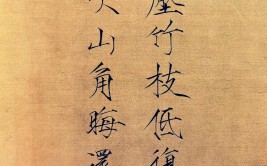 壓竹枝低復
吹山角晦還